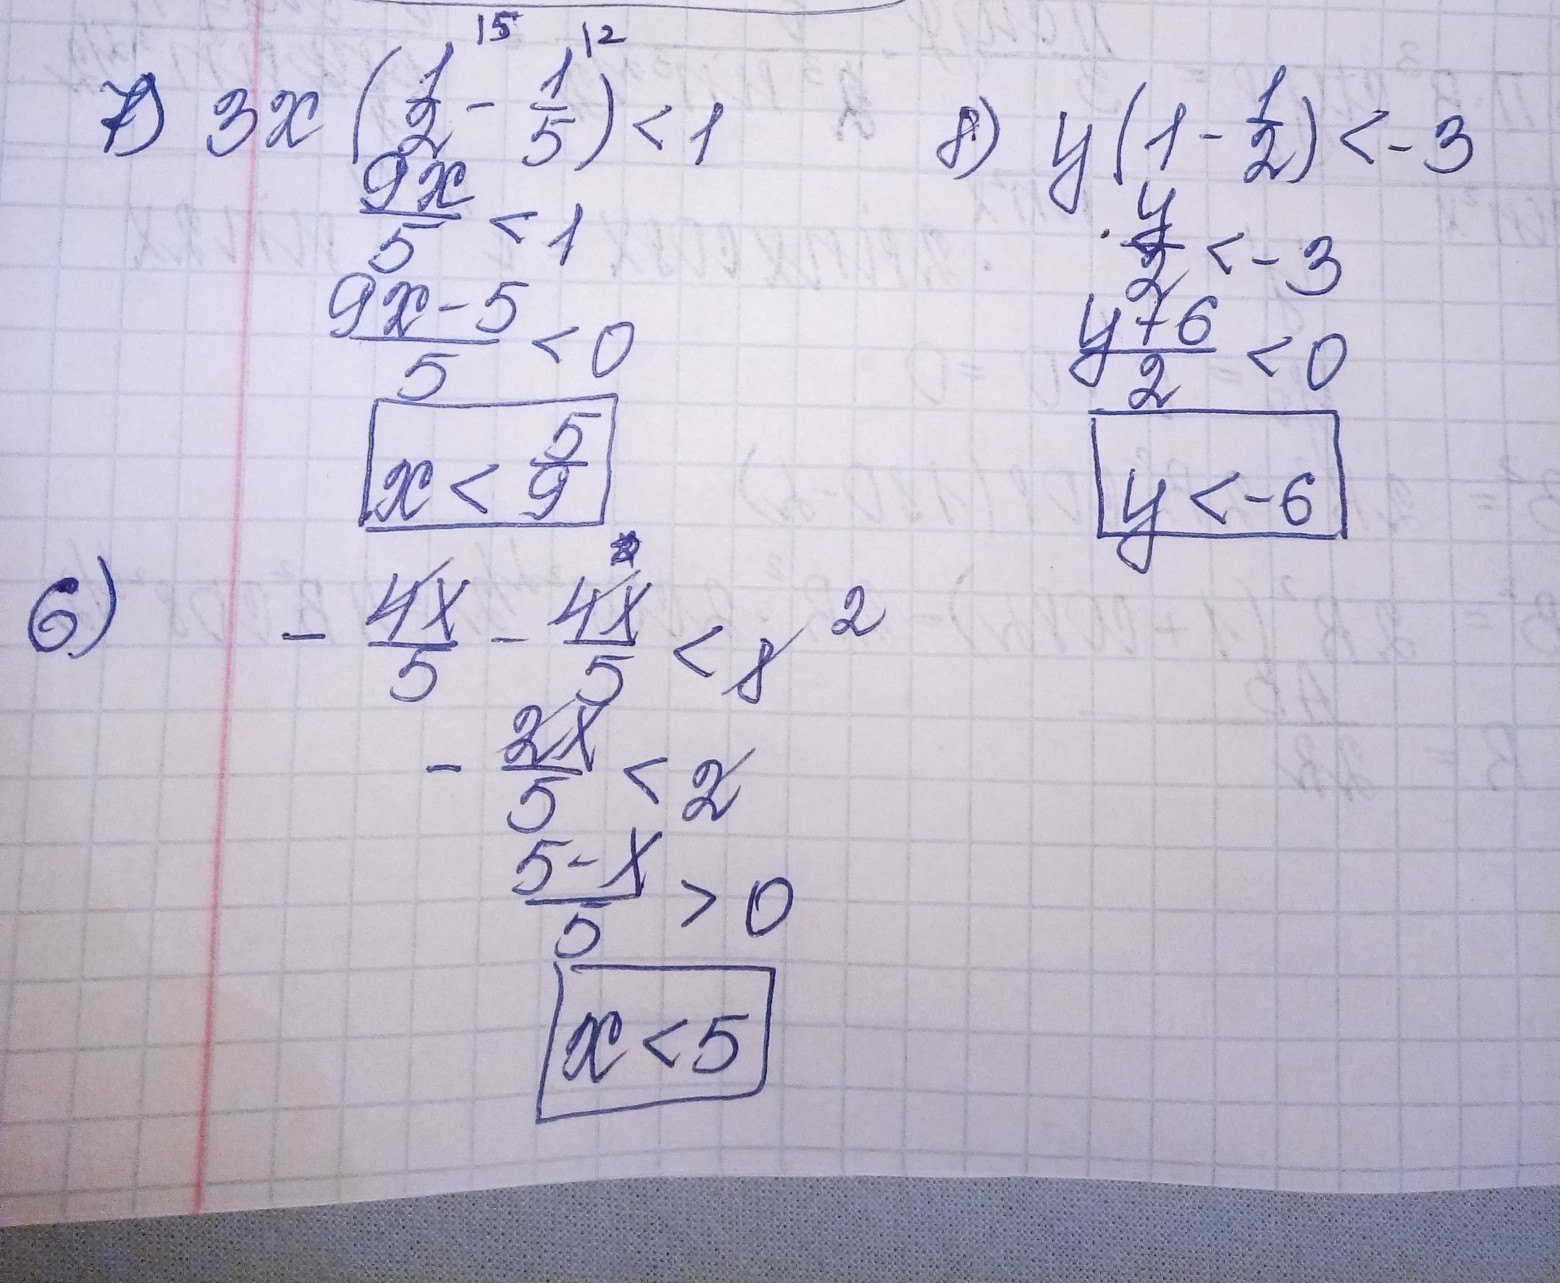 7) 3x (1/2 - 1/5) < 1
15 12
9x/5 < 1
(9x - 5)/5 < 0
x < 5/9
8) y (1 - 1/2) < -3
y/2 < -3
(y + 6)/2 < 0
y < -6
6) - 4x/5 - 4x/5 < 8 2
- 2x/5 < 2
(5 - x)/5 > 0
x < 5